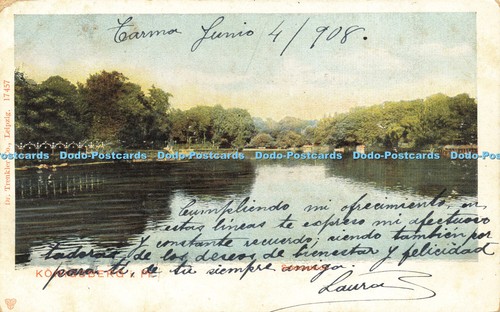 Tarma Junio 4/908.
Dr. Trenkler Co., Leipzig. 17457
Dodo-Postcards Dodo-Postcards Dodo-Postcards Dodo-Postcards Dodo-Postcards Dodo-Postcards
Cumpliendo mi ofrecimiento, en
estas lineas te expreso mi afectuoso
y constante recuerdo; siendo también por
tadoras de los deseos de bienestar y felicidad
para ti, de tu siempre amiga.
KÖNIGSBERG i. Pr.
Laura